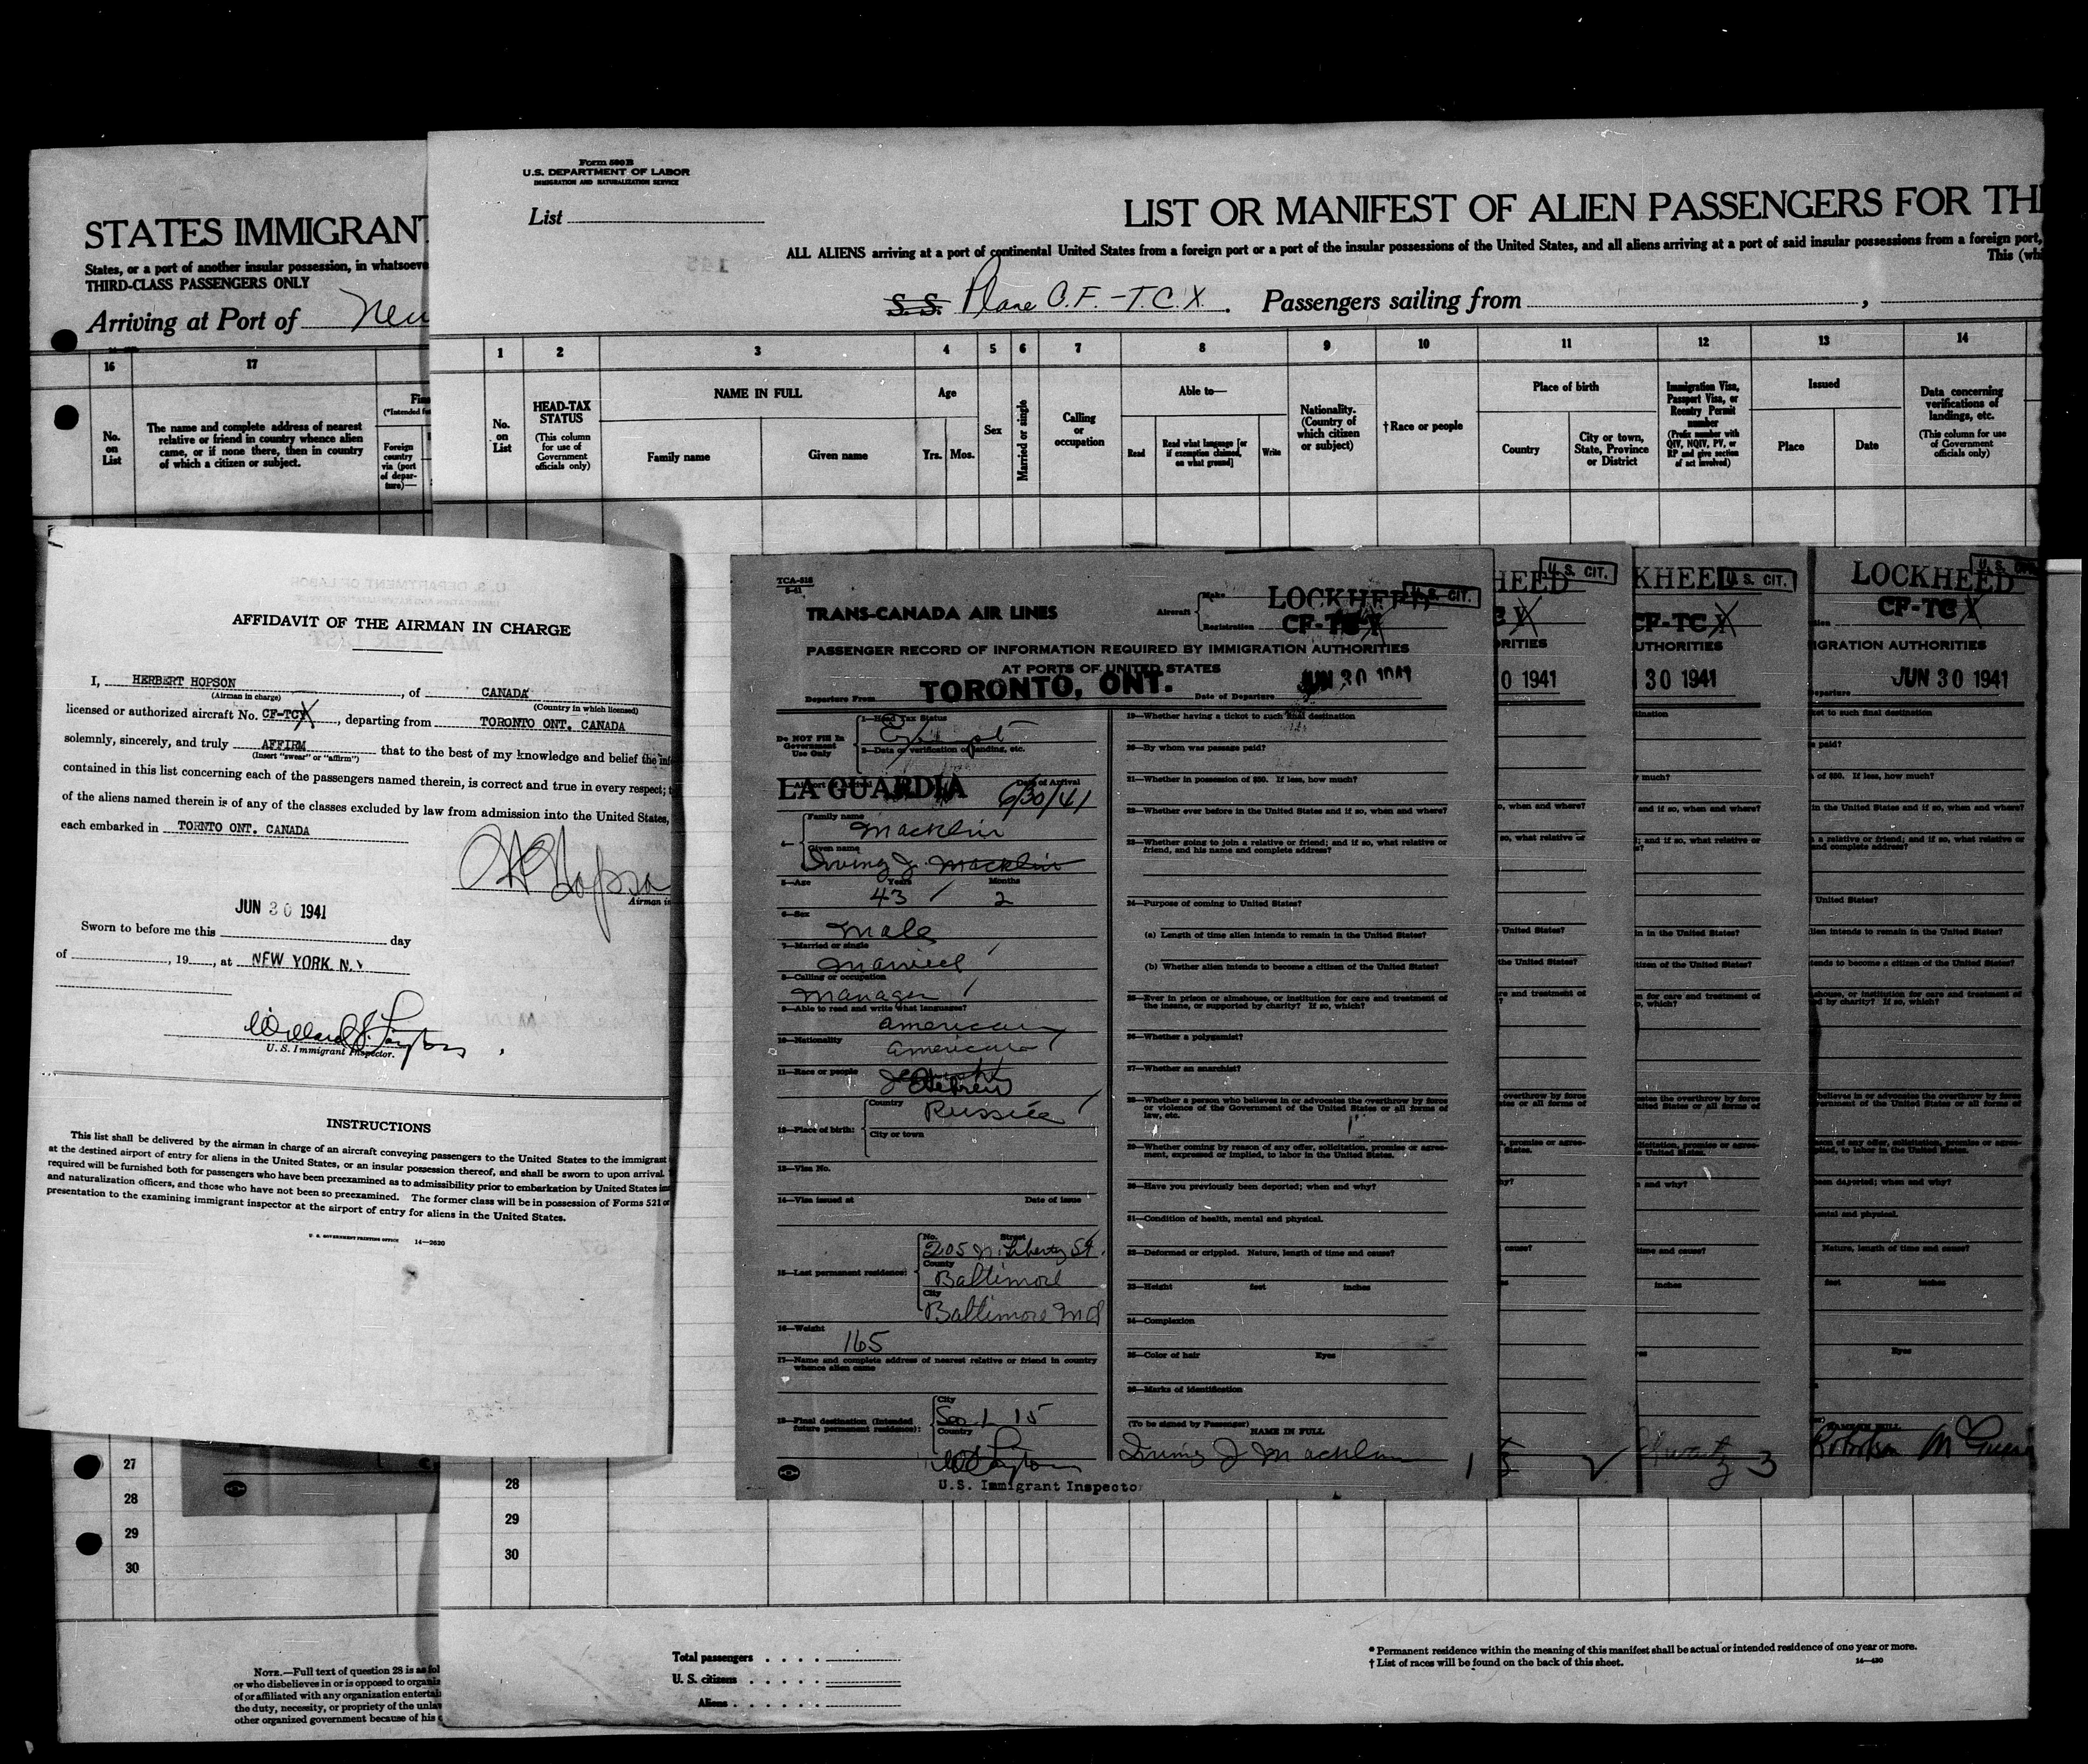 STATES IMMIGRANT
States, or a port of another insular possession, in whatsoeve
THIRD-CLASS PASSENGERS ONLY
Arriving at Port of New
16 17
No. on List
The name and complete address of nearest
relative or friend in country whence alien
came, or if none there, then in country
of which a citizen or subject.
(*Intended fu
Foreign
country
via (port
of depar-
ture)—
Form 500B
U.S. DEPARTMENT OF LABOR
IMMIGRATION AND NATURALIZATION SERVICE
List
LIST OR MANIFEST OF ALIEN PASSENGERS FOR TH
ALL ALIENS arriving at a port of continental United States from a foreign port or a port of the insular possessions of the United States, and all aliens arriving at a port of said insular possessions from a foreign port,
This (whi
S.S. Plane C.F.-T.C.X. Passengers sailing from ,
1 2 3 4 5 6 7 8 9 10 11 12 13 14
No.
on
List
HEAD-TAX
STATUS
(This column
for use of
Government
officials only)
NAME IN FULL
Family name Given name
Age
Yrs. Mos.
Sex
Married or single
Calling
or
occupation
Able to—
Read
Read what language [or
if exemption claimed,
on what ground]
Write
Nationality.
(Country of
which citizen
or subject)
†Race or people
Place of birth
Country
City or town,
State, Province
or District
Immigration Visa,
Passport Visa, or
Reentry Permit
number
(Prefix number with
QIV, NQIV, PV, or
RP and give section
of act involved)
Issued
Place Date
Data concerning
verifications of
landings, etc.
(This column for use
of Government
officials only)
AFFIDAVIT OF THE AIRMAN IN CHARGE
I, HERBERT HOPSON, of CANADA
(Airman in charge) (Country in which licensed)
licensed or authorized aircraft No. CF-TCX, departing from TORONTO ONT. CANADA
solemnly, sincerely, and truly AFFIRM that to the best of my knowledge and belief the inf
(Insert "swear" or "affirm")
contained in this list concerning each of the passengers named therein, is correct and true in every respect; t
of the aliens named therein is of any of the classes excluded by law from admission into the United States,
each embarked in TORNTO ONT. CANADA
Airman in
JUN 30 1941
Sworn to before me this day
of , 19 , at NEW YORK N.Y
U.S. Immigrant Inspector.
INSTRUCTIONS
This list shall be delivered by the airman in charge of an aircraft conveying passengers to the United States to the immigrant
at the destined airport of entry for aliens in the United States, or an insular possession thereof, and shall be sworn to upon arrival.
required will be furnished both for passengers who have been preexamined as to admissibility prior to embarkation by United States im
and naturalization officers, and those who have not been so preexamined. The former class will be in possession of Forms 521 or
presentation to the examining immigrant inspector at the airport of entry for aliens in the United States.
U. S. GOVERNMENT PRINTING OFFICE 14—2620
TCA-518
TRANS-CANADA AIR LINES
Aircraft
Make LOCKHEED
U.S. CIT.
Registration CF-TCX
PASSENGER RECORD OF INFORMATION REQUIRED BY IMMIGRATION AUTHORITIES
AT PORTS OF UNITED STATES
Departure From TORONTO, ONT. Date of Departure JUN 30 1941
Do NOT Fill In
Government
Use Only
1—Head Tax Status
Exempt
2—Data of verification of landing, etc.
LA GUARDIA
Date of Arrival
6/30/41
4—
Family name
Macklin
Given name
Irving J. Macklin
5—Age Years Months
43 2
6—Sex
Male
7—Married or single
Married
8—Calling or occupation
Manager
9—Able to read and write what languages?
American
10—Nationality
American
11—Race or people
Hebrew
12—Place of birth:
Country
Russia
City or town
13—Visa No.
14—Visa issued at Date of issue
15—Last permanent residence:
No. Street
205 N. Liberty St.
County
Baltimore
City
Baltimore Md
16—Weight
165
17—Name and complete address of nearest relative or friend in country
whence alien came
18—Final destination (Intended
future permanent residence):
City
See 15
Country
U.S. Immigrant Inspector
19—Whether having a ticket to such final destination
20—By whom was passage paid?
21—Whether in possession of $50. If less, how much?
22—Whether ever before in the United States and if so, when and where?
23—Whether going to join a relative or friend; and if so, what relative or
friend, and his name and complete address?
24—Purpose of coming to United States?
(a) Length of time alien intends to remain in the United States?
(b) Whether alien intends to become a citizen of the United States?
25—Ever in prison or almshouse, or institution for care and treatment of
the insane, or supported by charity? If so, which?
26—Whether a polygamist?
27—Whether an anarchist?
28—Whether a person who believes in or advocates the overthrow by force
or violence of the Government of the United States or all forms of
law, etc.
29—Whether coming by reason of any offer, solicitation, promise or agree-
ment, expressed or implied, to labor in the United States.
30—Have you previously been deported; when and why?
31—Condition of health, mental and physical.
32—Deformed or crippled. Nature, length of time and cause?
33—Height feet inches
34—Complexion
35—Color of hair Eyes
36—Marks of identification
(To be signed by Passenger)
NAME IN FULL
Irving J Macklin 1
HEED U.S. CIT.
RITIES
0 1941
KHEED U.S. CIT.
CF-TCX
UTHORITIES
30 1941
3
LOCKHEED
CF-TCX
IGRATION AUTHORITIES
JUN 30 1941
27
28
29
30
28
29
30
NOTE.—Full text of question 28 is as fol
or who disbelieves in or is opposed to organi
of or affiliated with any organization entertai
the duty, necessity, or propriety of the unla
other organized government because of his o
Total passengers
U. S. citizens
Aliens
* Permanent residence within the meaning of this manifest shall be actual or intended residence of one year or more.
† List of races will be found on the back of this sheet.
14—430